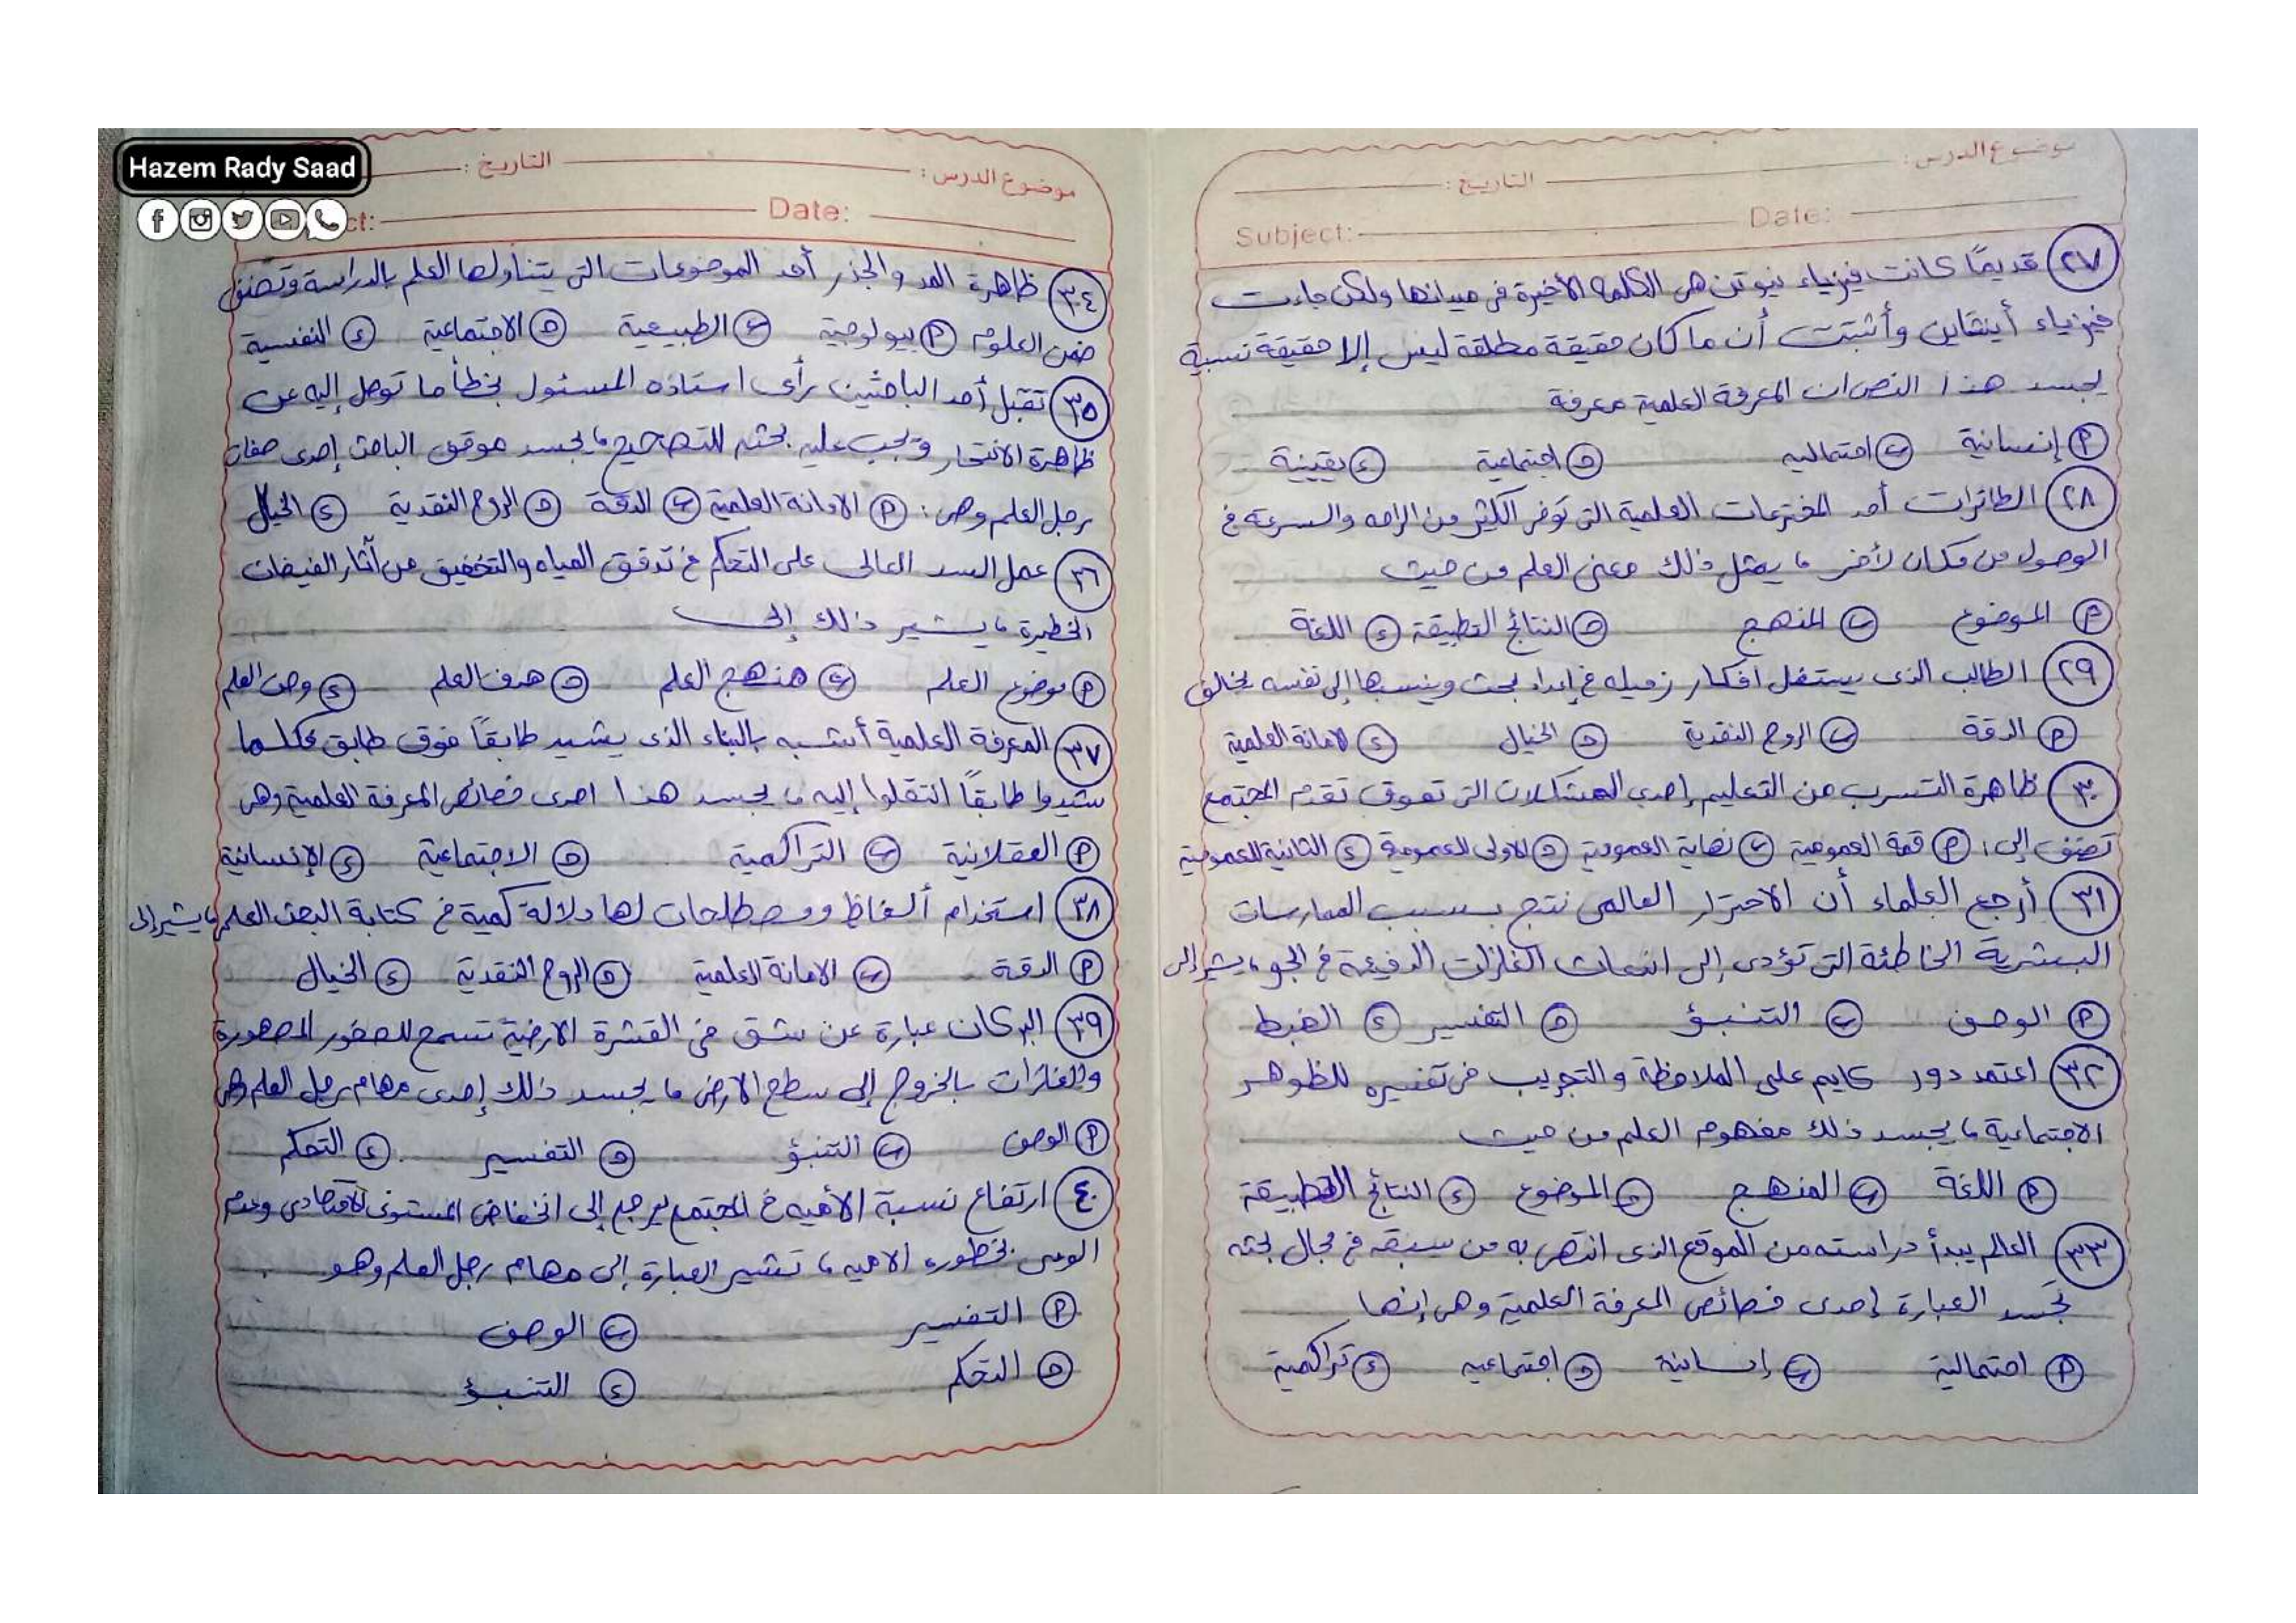 Hazem Rady Saad
موضوع الدرس: التاريخ:
Subject: Date:
٢٧ قديمًا كانت فيزياء نيوتن هى الكلمة الأخيرة فى ميدانها ولكن جاءت
فيزياء أينشتاين وأثبتت أن ما كان حقيقة مطلقة ليس إلا حقيقة نسبية
يجسد هذا النص ان المعرفة العلمية معرفة
أ إنسانية ب احتماليه ج اجتماعية د يقينية
٢٨ الطائرات أحد المخترعات العلمية التى توفر الكثير من الراحه والسرعة فى
الوصول من مكان لأخر ، يمثل ذلك معنى العلم من حيث
أ الموضوع ب المنهج ج النتائج التطبيقة د اللغة
٢٩ الطالب الذى يستغل افكار زميله فى إعداد بحث وينسبها إلى نفسه يخالف
أ الدقة ب الروح النقدية ج الخيال د الامانة العلمية
٣٠ ظاهرة التسرب من التعليم إحدى المشكلات التى تعوق تقدم المجتمع
تصنف إلى: أ قمة العمومية ب نهاية العمومية ج الاولى للعمومية د الثانية للعمومية
٣١ أرجع العلماء أن الاحترار العالمى نتج بسبب الممارسات
البشرية الخاطئة التى تؤدى إلى انبعاث الغازات الدفيئة فى الجو ، يشير إلى
أ الوصف ب التنبؤ ج التفسير د الضبط
٣٢ اعتمد دور كايم على الملاحظة والتجريب فى تفسيره للظوهر
الاجتماعية ، يجسد ذلك مفهوم العلم من حيث
أ اللغة ب المنهج ج الموضوع د النتائج التطبيقة
٣٣ العالم يبدأ دراسته من الموقع الذى انتهى به من سبقه فى مجال بحثه
تجسد العبارة إحدى خصائص المعرفة العلمية وهى إنها
أ احتمالية ب إنسانية ج اجتماعيه د تراكمية
موضوع الدرس: التاريخ:
ct: Date:
٣٤ ظاهرة المد والجذر أحد الموضوعات التى يتناولها العلم بالدراسة وتصنف
ضمن العلوم أ بيولوجية ب الطبيعية ج الاجتماعية د النفسية
٣٥ تقبل أحد الباحثين رأى استاذه المسئول بخطأ ما توصل إليه عن
ظاهرة الانتحار ويجب عليه بحثه للتصحيح ، يجسد موقف الباحث إحدى صفات
رجل العلم وهى: أ الامانة العلمية ب الدقة ج الروح النقدية د الخيال
٣٦ عمل السد العالى على التحكم فى تدفق المياه والتخفيف من آثار الفيضات
الخطيرة ، يشير ذلك إلى
أ موضوع العلم ب منهج العلم ج هدف العلم د وصف العلم
٣٧ المعرفة العلمية أشبه بالبناء الذى يشيد طابقًا فوق طابق فكلما
شيدوا طابقًا انتقلوا إليه ، يجسد هذا احدى خصائص المعرفة العلمية وهى
أ العقلانية ب التراكمية ج الاجتماعية د الإنسانية
٣٨ استخدام ألفاظ ومصطلحات لها دلالة كمية فى كتابة البحث العلمى ، يشير إلى
أ الدقة ب الامانة العلمية ج الروح النقدية د الخيال
٣٩ البركان عبارة عن شق فى القشرة الارضية تسمح للصخور المصهورة
والغازات بالخروج إلى سطح الارض ، يجسد ذلك إحدى مهام رجل العلم وهى
أ الوصف ب التنبؤ ج التفسير د التحكم
٤٠ ارتفاع نسبة الأميه فى المجتمع يرجع إلى انخفاض المستوى الاقتصادى وعدم
الوعى بخطوره الاميه ، تشير العبارة إلى مهام رجل العلم وهو
أ التفسير ب الوصف
ج التحكم د التنبؤ